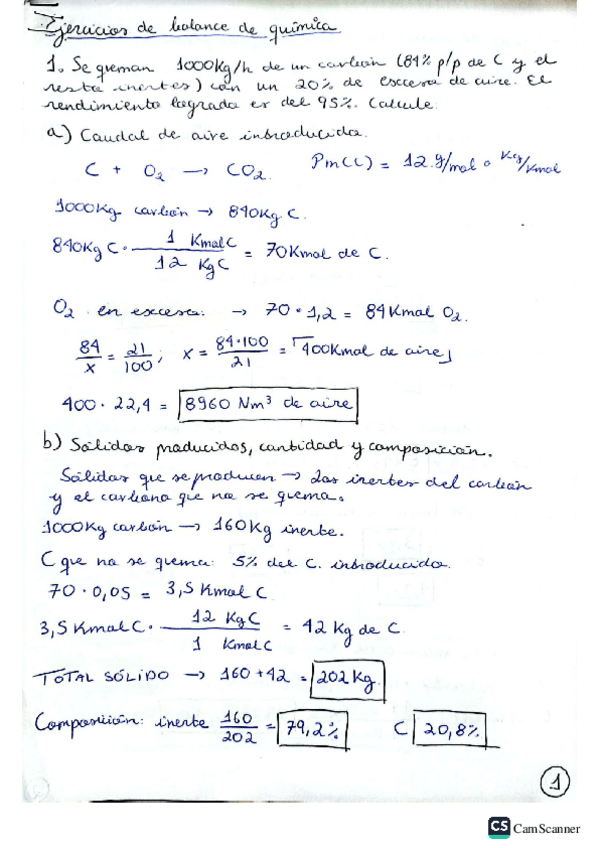 Ejercicios de balance de química
1. Se queman 1000Kg/h de un carbón (84% p/p de C y el
resto inertes) con un 20% de exceso de aire. El
rendimiento logrado es del 95%. Calcule:
a) Caudal de aire introducido.
C + O₂ → CO₂. Pm(C) = 12.g/mol o Kg/Kmol
1000Kg carbón → 840Kg C.
840Kg C · 1 KmolC / 12 KgC = 70Kmol de C.
O₂ en exceso: → 70 · 1,2 = 84Kmol O₂.
84/x = 21/100 ; x = 84·100/21 = 400Kmol de aire
400 · 22,4 = 8960 Nm³ de aire
b) Sólidos producidos, cantidad y composición.
Sólidos que se producen → Los inertes del carbón
y el carbono que no se quema.
1000Kg carbón → 160Kg inerte.
C que no se quema: 5% del C. introducido.
70 · 0,05 = 3,5 Kmol C
3,5 KmolC · 12 KgC / 1 KmolC = 42 Kg de C.
TOTAL SÓLIDO → 160+42 = 202Kg.
Composición: inerte 160/202 = 79,2% C 20,8%
1
CS CamScanner